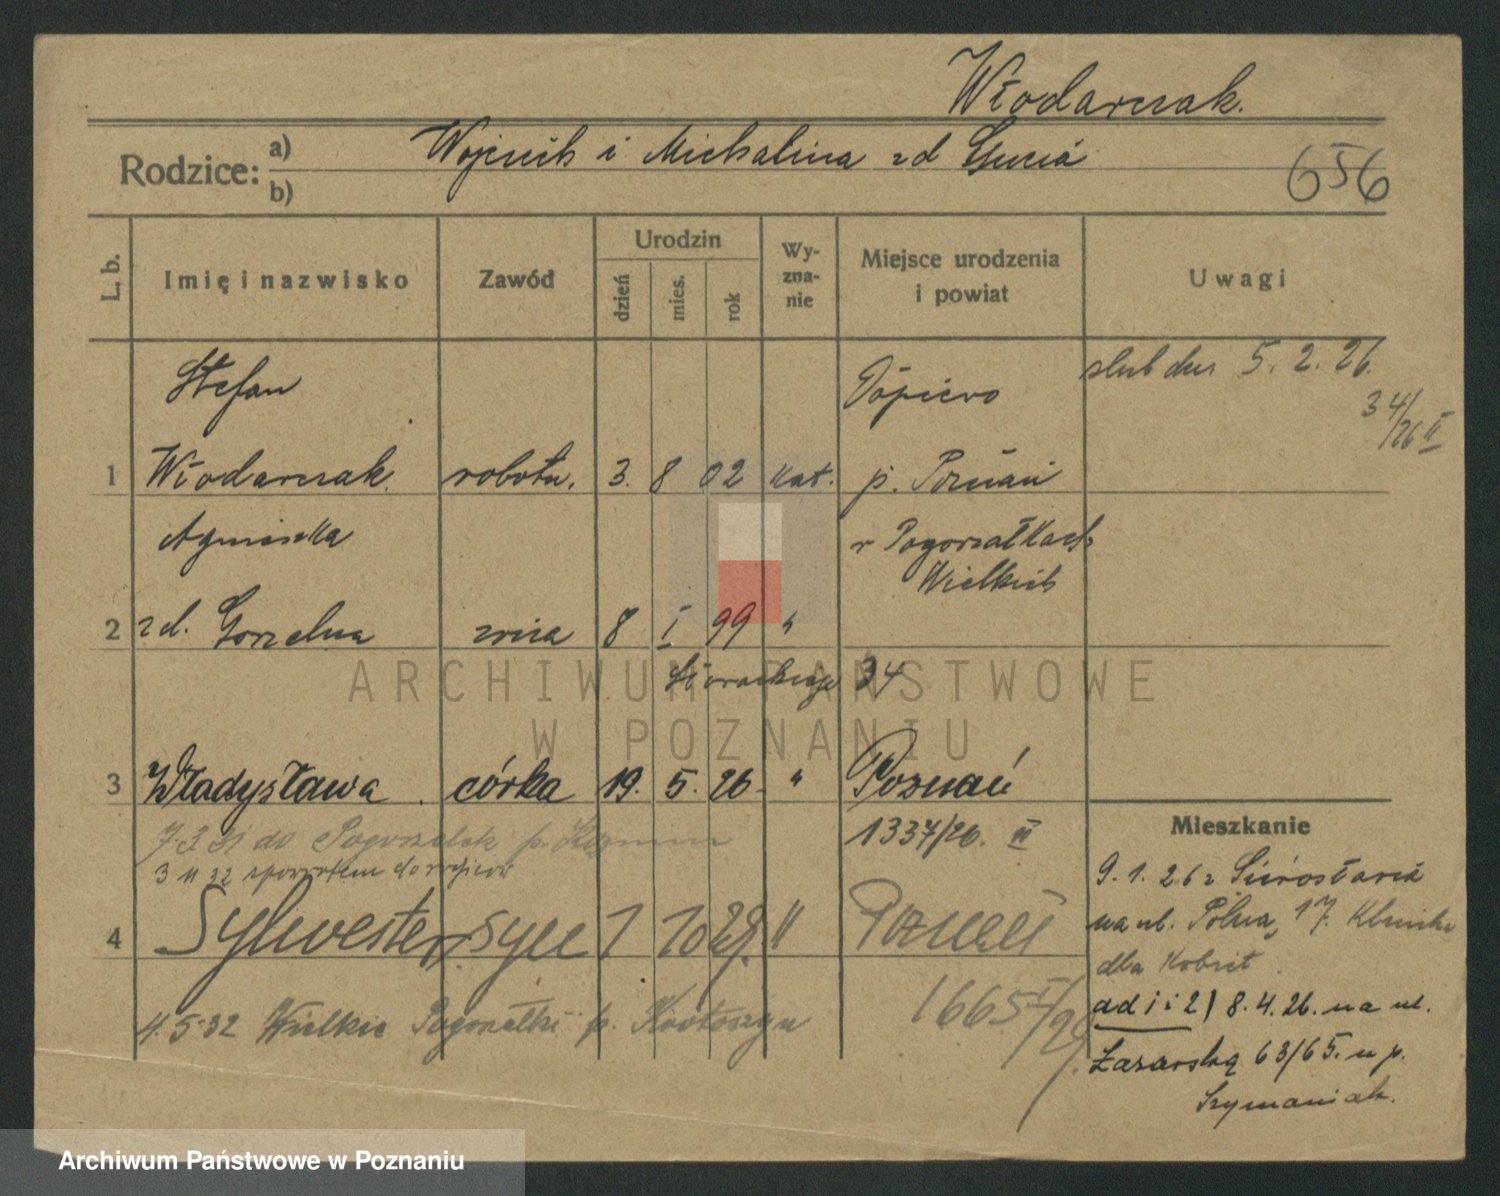 Włodarczak.
Rodzice: a) Wojciech i Michalina zd
b)
656
L. b.
Imię i nazwisko
Zawód
Urodzin
dzień
mies.
rok
Wy-
zna-
nie
Miejsce urodzenia
i powiat
Uwagi
Stefan
Dopiewo
ślub dn. 5. 2. 26.
34/26 II
1 Włodarczak. robotn. 3. 8 02 kat. p. Poznań
Agnieszka
w Pogorzałkach
Wielkich
2 zd. Gorzelna żona 8 I 99 "
34
3 Władysława. córka 19. 5. 26. " Poznań
1337/26. II
7.3.31 do Pogorzałek p. Koźmin
3 11 32 z powrotem do
4 Sylwester syn 1 10 29. " Poznań
1665 I/29.
4.5.32 Wielkie Pogorzałki p. Krotoszyn
Mieszkanie
9. 1. 26 z
na ul. Polna, 17. Klinika
dla Kobiet
ad 1 i 2) 8. 4. 26. na ul.
Łazarską 63/65. u p.
Szymaniak.
ARCHIWUM PAŃSTWOWE
W POZNANIU
Archiwum Państwowe w Poznaniu